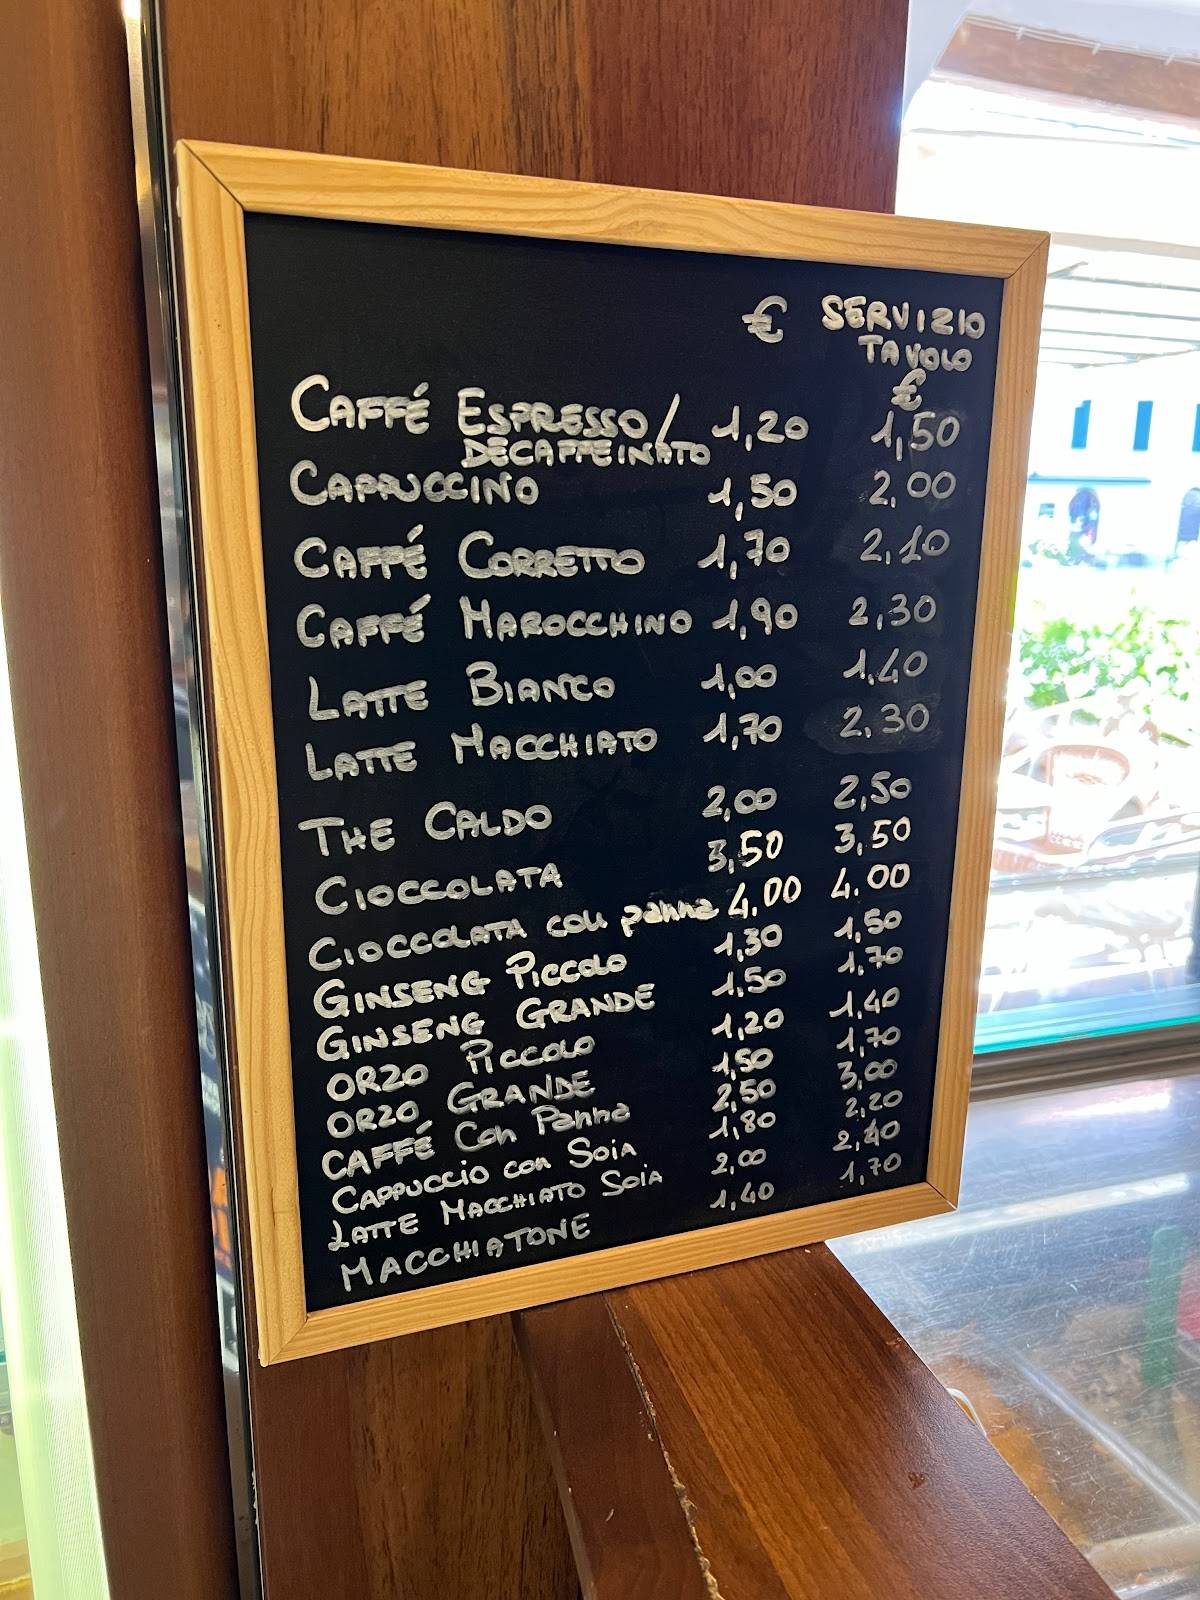 € SERVIZIO
TAVOLO
€
CAFFÉ ESPRESSO/ 1,20 1,50
DECAFFEINATO
CAPPUCCINO 1,50 2,00
CAFFÉ CORRETTO 1,70 2,10
CAFFÉ MAROCCHINO 1,90 2,30
LATTE BIANCO 1,00 1,40
LATTE MACCHIATO 1,70 2,30
THE CALDO 2,00 2,50
CIOCCOLATA 3,50 3,50
CIOCCOLATA con panna 4.00 4.00
GINSENG PICCOLO 1,30 1,50
GINSENG GRANDE 1,50 1,70
ORZO PICCOLO 1,20 1,40
ORZO GRANDE 1,50 1,70
CAFFÉ Con Panna 2,50 3,00
CAPPUCCIO con SOIA 1,80 2,20
LATTE MACCHIATO SOIA 2,00
MACCHIATONE 1,40 1,70